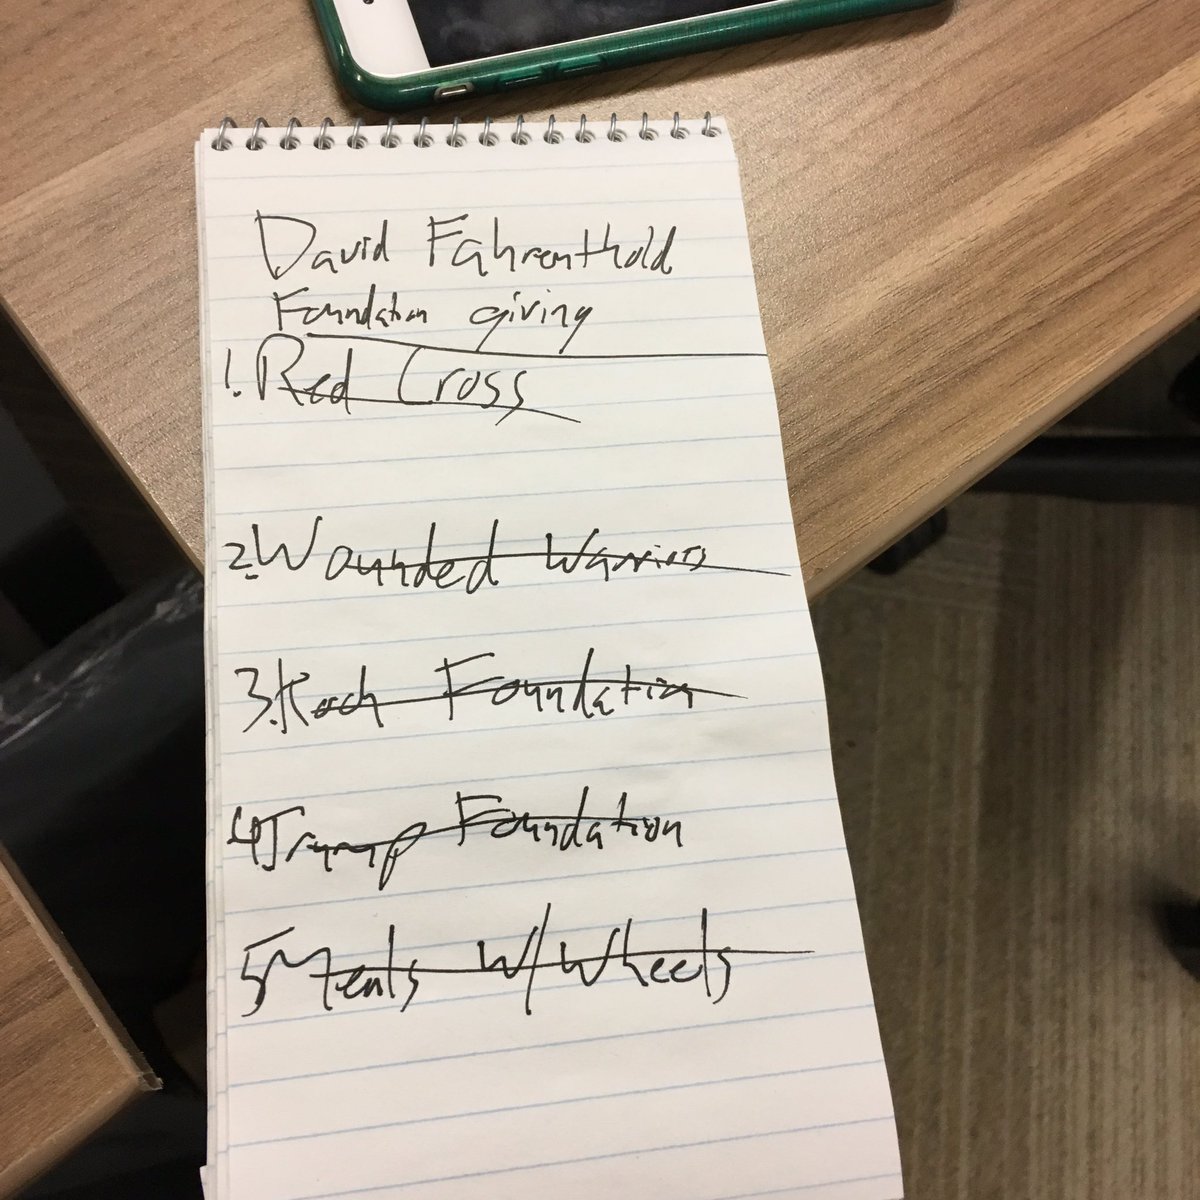 David Fahrenthold
Foundation giving
1. Red Cross
2. Wounded Warriors
3. Koch Foundation
4 Trump Foundation
5 Meals w/ Wheels